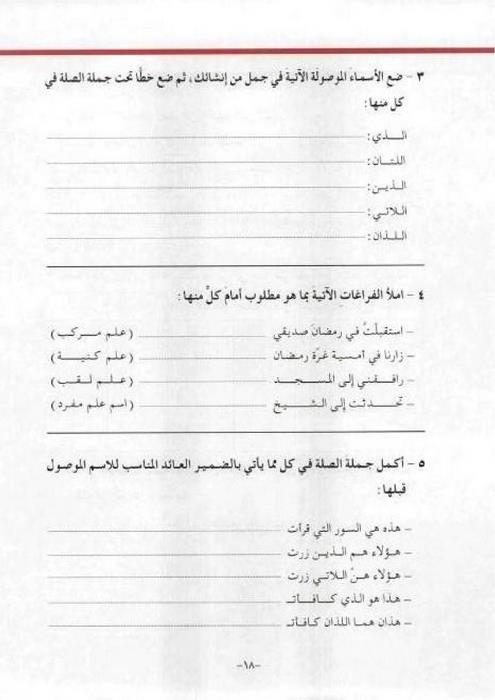 ٣ - ضع الأسماءَ الموصولَة الآتيةَ في جمل من إنشائك، ثم ضع خطًّا تحت جملة الصلة في
كل منها:
الـــذي:
اللتـان:
الذيـن:
الـلاتي:
اللـذان:
٤ - املأ الفراغات الآتيةَ بما هو مطلوب أمامَ كلٍّ منها:
- استقبلتُ في رمضانَ صديقي (علم مـركب)
- زارنا في أمسية غرّة رمضان (علم كنيـة)
- رافـقني إلى المسـجد (علـم لـقب)
- تحـدثت إلى الشـيخ (اسم علم مفرد)
٥ - أكمل جملةَ الصلة في كل مما يأتي بالضمير العائد المناسب للاسم الموصول
قبلها:
- هذه هي السور التي قرأت
- هـؤلاء هـم الـذين زرت
- هـؤلاء هنّ اللاتي زرت
- هـذا هـو الذي كـافـأتـ
- هـذان همـا اللـذان كافـأتـ
-١٨-